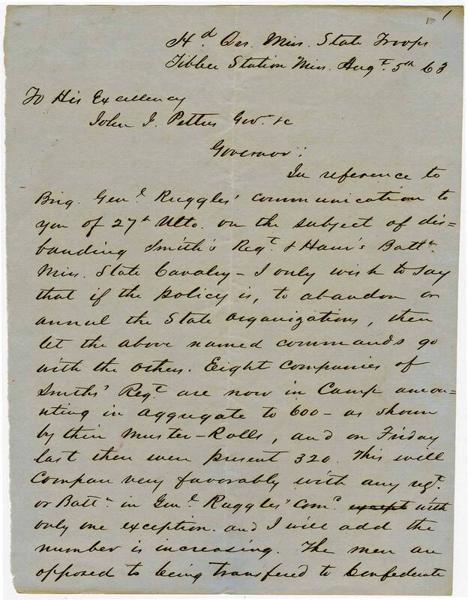 1
Hd Qrs. Miss. State Troops
Tibbee Station Miss. Augt. 5th 63
To His Excellency
John J. Pettus Gov. &c
Governor:
In reference to
Brig. Genl. Ruggles' communication to
you of 27th Ulto. on the subject of dis=
banding Smith's Regt. & Ham's Battn.
Miss. State Cavalry - I only wish to say
that if the policy is, to abandon or
annul the State organizations, then
let the above named commands go
with the others. Eight companies of
Smiths' Regt are now in Camp amou-
nting in aggregate to 600 - as shown
by their Muster-Rolls, and on Friday
last there were present 320. This will
compare very favorably with any regt.
or Battn. in Genl. Ruggles' Comd. except with
only one exception. and I will add the
number is increasing. The men are
opposed to being transfered to Confederate